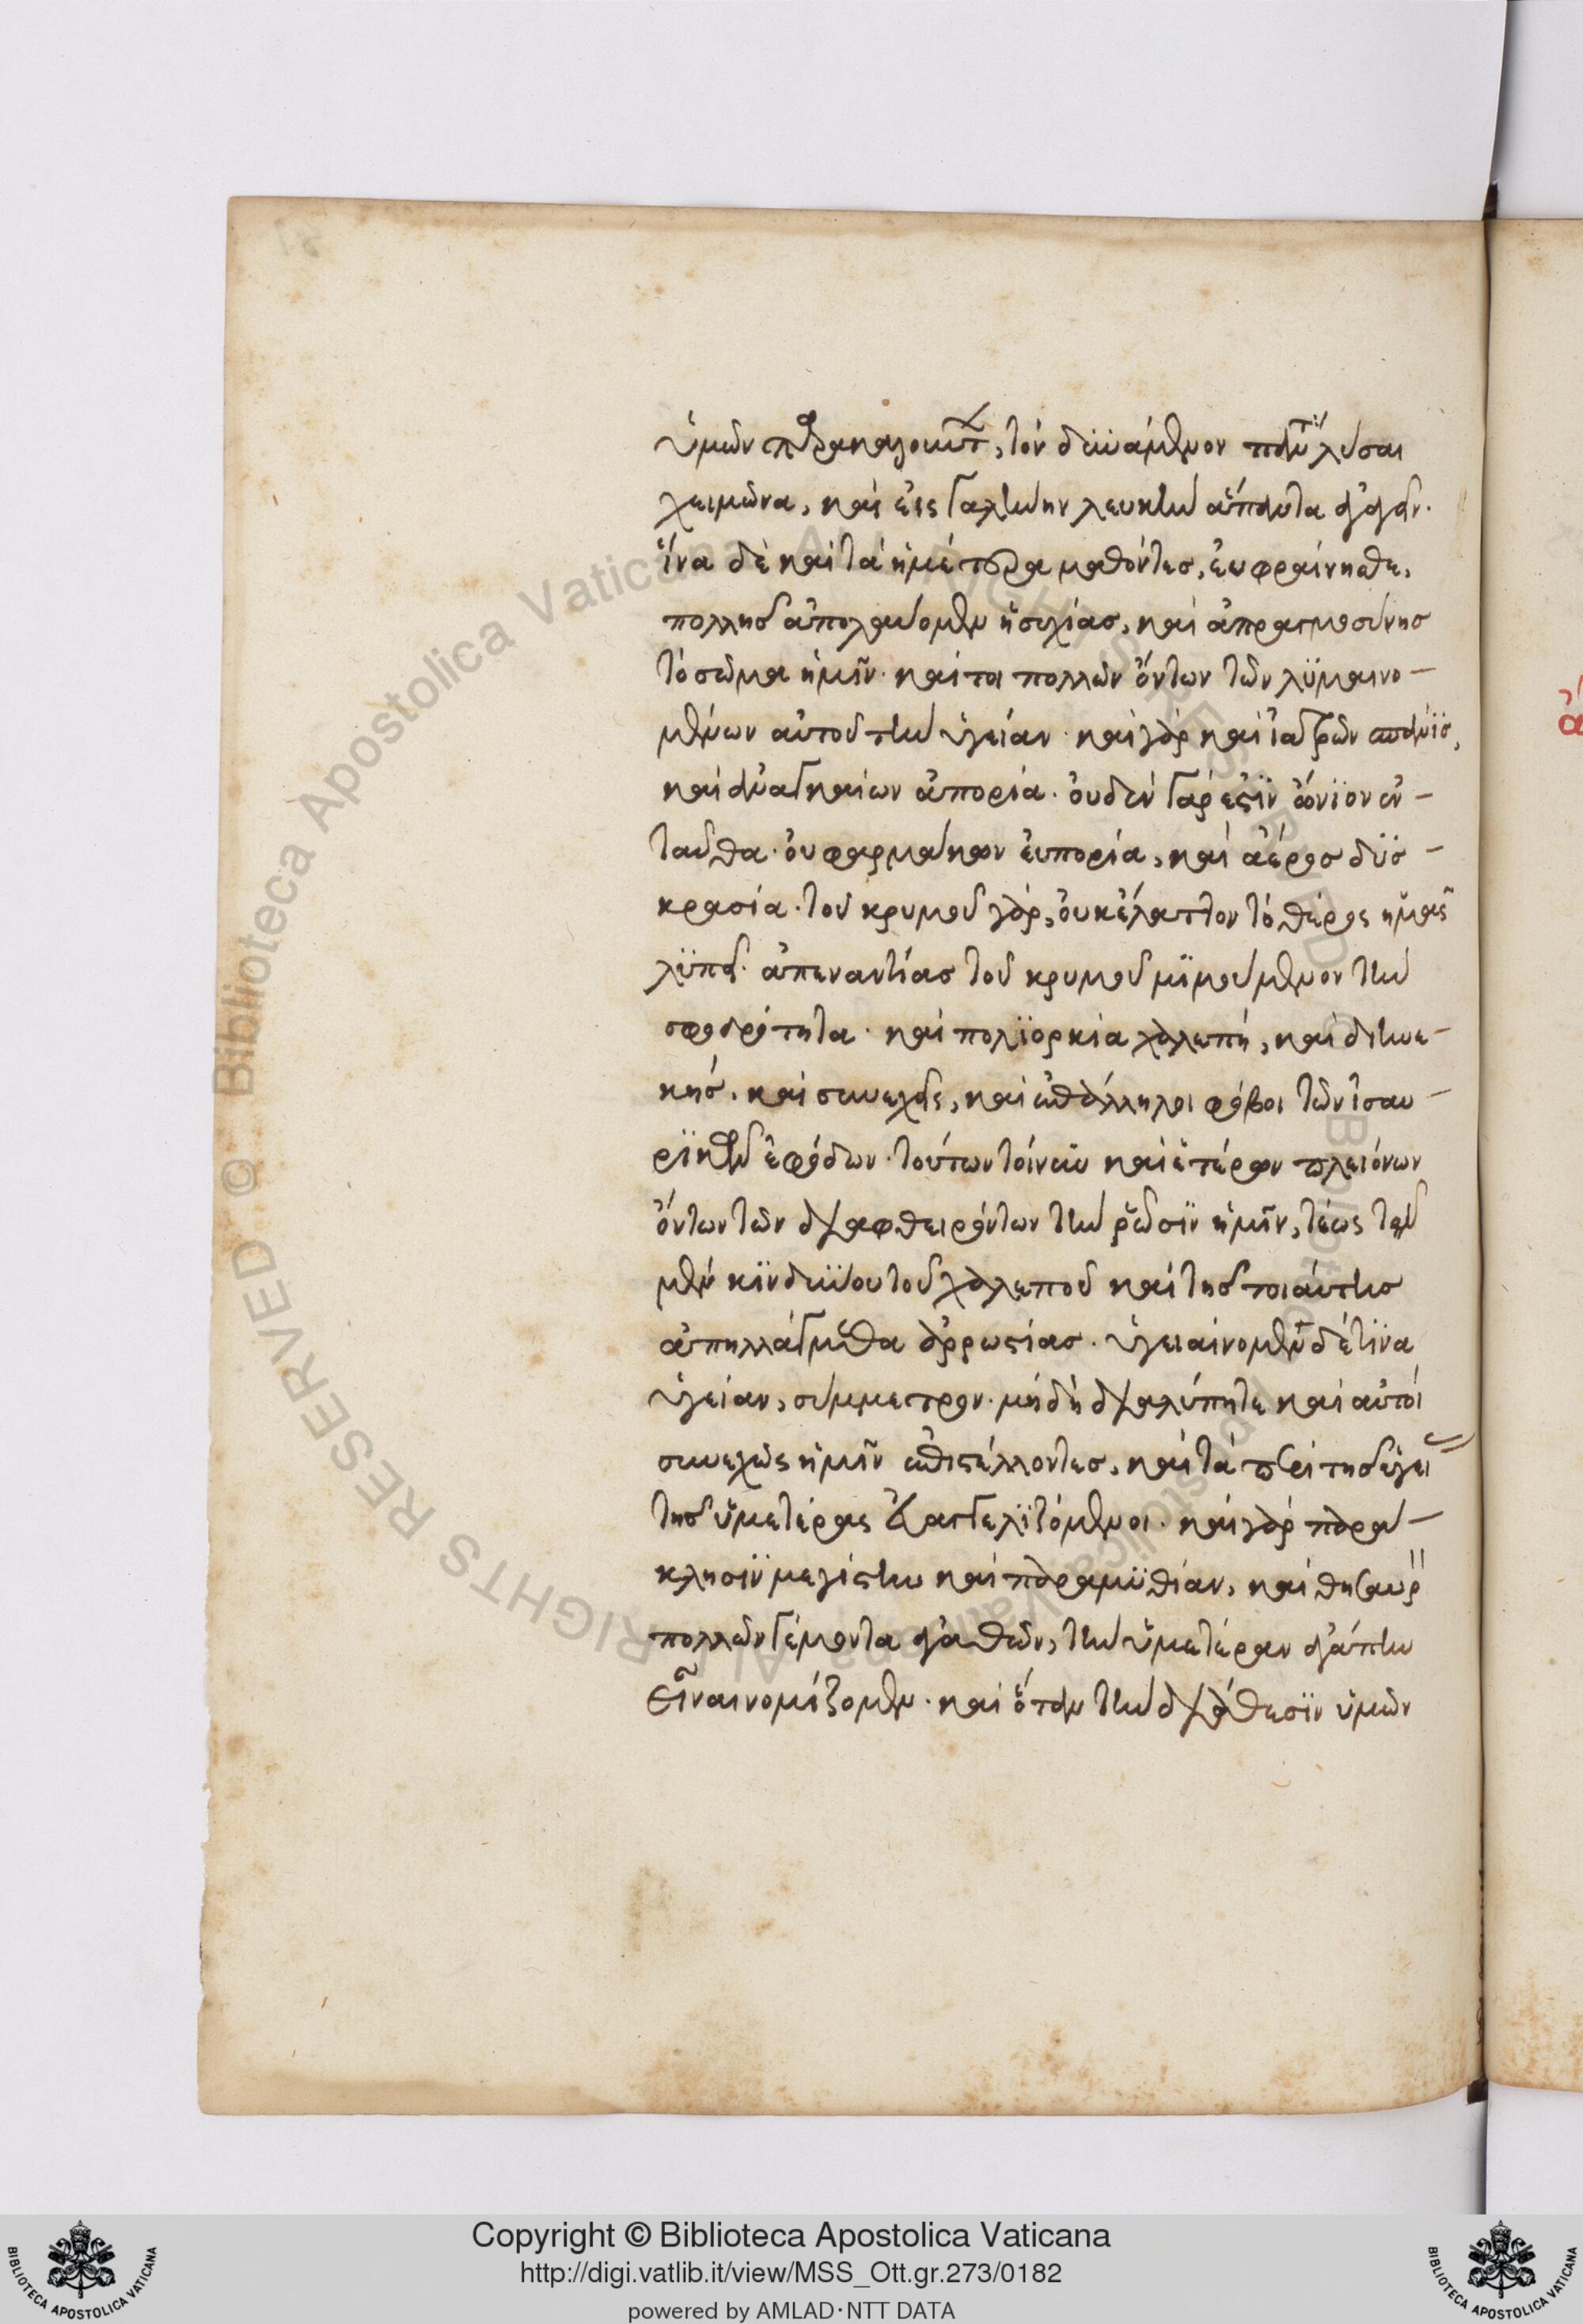 ὑμῶν παρακαλοῦντες, τὸν δυνάμενον πάντα λύσαι
χειμῶνα, καὶ εἰς γαλήνην λευκὴν ἅπαντα ἀγαγεῖν.
ἵνα δὲ καὶ τὰ ἡμέτερα μαθόντες, εὐφραίνησθε,
πολλῆς ἀπολαύομεν ἡσυχίας, καὶ ἀπραγμοσύνης
τὸ σῶμα ἡμῖν. καίτοι πολλῶν ὄντων τῶν λυμαινο-
μένων αὐτοῦ τὴν ὑγείαν. καὶ γὰρ καὶ ἰατρῶν σπάνις,
καὶ ἀναγκαίων ἀπορία. οὐδὲν γάρ ἐστιν ὤνιον ἐν-
ταῦθα. οὐ φαρμάκων εὐπορία, καὶ ἀέρος δυσ-
κρασία. τοῦ κρυμοῦ γὰρ, οὐκ ἔλαττον τὸ θέρος ἡμᾶς
λυπεῖ. ἀπεναντίας τοῦ κρυμοῦ μιμούμενον τὴν
σφοδρότητα. καὶ πολιορκία χαλεπή, καὶ διηνε-
κής. καὶ συνεχεῖς, καὶ ἐπάλληλοι φόβοι τῶν ἰσαυ-
ρικῶν ἐφόδων. τούτων τοίνυν καὶ ἑτέρων πλειόνων
ὄντων τῶν διαφθειρόντων τὴν ῥῶσιν ἡμῖν, τέως τοῦ
μὲν κινδύνου τοῦ χαλεποῦ καὶ τῆς τοιαύτης
ἀπηλλάγμεθα ἀρρωστίας. ὑγειαίνομεν δέ τινα
ὑγείαν, σύμμετρον. μὴ δὴ διαλίπητε καὶ αὐτοὶ
συνεχῶς ἡμῖν ἐπιστέλλοντες, καὶ τὰ περὶ τῆς ὑγεί
τῆς ὑμετέρας εὐαγγελιζόμενοι. καὶ γὰρ παρά-
κλησιν μεγίστην καὶ παραμυθίαν, καὶ θησαυρ
πολλῶν γέμοντα ἀγαθῶν, τὴν ὑμετέραν ἀγάπην
εἶναι νομίζομεν. καὶ ὅταν τὴν διάθεσιν ὑμῶν
Copyright © Biblioteca Apostolica Vaticana
http://digi.vatlib.it/view/MSS_Ott.gr.273/0182
powered by AMLAD·NTT DATA